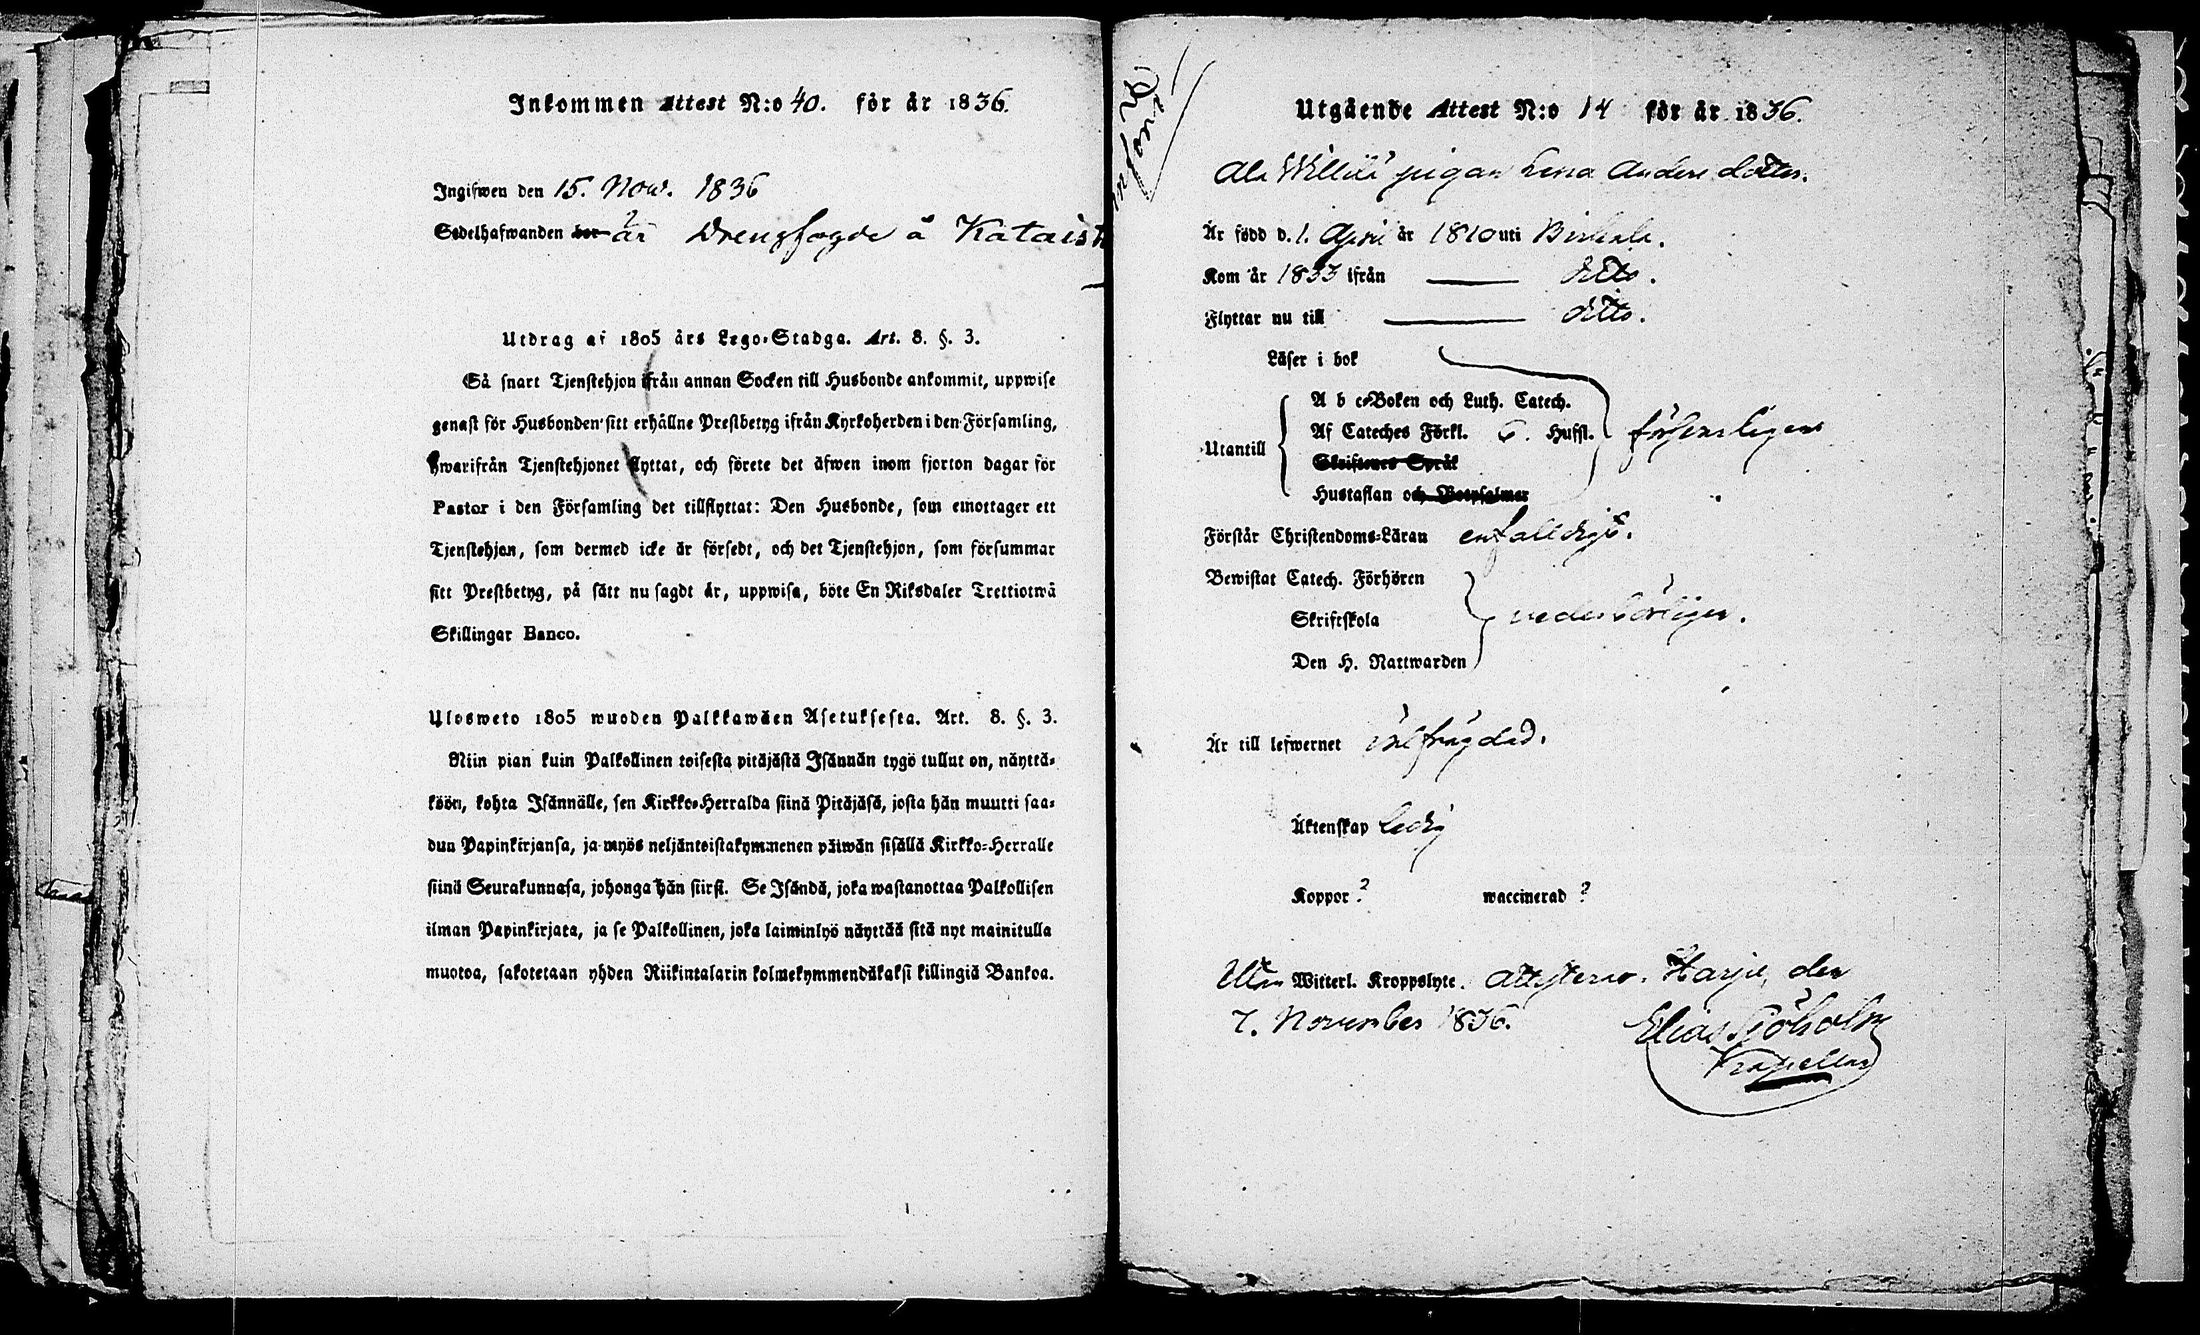 Inkommen Attest N:o 40. för år 1836.
Ingifwen den 15. Now. 1836
Sedelhafwanden bor är Drengfogde å Kataist
Utdrag af 1805 års Lego-Stadga. Art. 8. §. 3.
Så snart Tjenstehjon ifrån annan Socken till Husbonde ankommit, uppwise
genast för Husbonden sitt erhållne Prestbetyg ifrån Kyrkoherden i den Församling,
hwarifrån Tjenstehjonet flyttat, och förete det äfwen inom fjorton dagar för
Pastor i den Församling det tillflyttat: Den Husbonde, som emottager ett
Tjenstehjon, som dermed icke är försedt, och det Tjenstehjon, som försummar
sitt Prestbetyg, på sätt nu sagdt är, uppwisa, böte En Riksdaler Trettiotwå
Skillingar Banco.
Ulosweto 1805 wuoden Palkkawäen Asetuksesta. Art. 8. §. 3.
Niin pian kuin Palkollinen toisesta pitäjästä Isännän tygö tullut on, näyttä-
köön, kohta Isännälle, sen Kirkko-Herralda siinä Pitäjäsä, josta hän muutti saa-
dun Papinkirjansa, ja myös neljäntoistakymmenen päiwän sisällä Kirkko-Herralle
siinä Seurakunnasa, johonga hän siirsi. Se Isändä, joka wastanottaa Palkollisen
ilman Papinkirjata, ja se Palkollinen, joka laiminlyö näyttää sitä nyt mainitulla
muotoa, sakotetaan yhden Riikintalarin kolmekymmendäkaksi killingiä Bankoa.
Utgående Attest N:o 14 för år 1836.
Ala Willilä pigan Lena Anders dotter.
Är född d. 1. April år 1810 uti Birkala.
Kom år 1833 ifrån — ditto.
Flyttar nu till — ditto.
Läser i bok
A b c-Boken och Luth. Catech.
Utantill Af Cateches Förkl. 6. Hufst. försvarligen
Skriftenes Språk
Hustaflan och Botpsalmer
Förstår Christendoms-Läran enfalldigt.
Bewistat Catech. Förhören
Skriftskola vederbörligen.
Den H. Nattwarden
Är till lefwernet välfrägdad.
Äktenskap ledig
Koppor ? waccinerad ?
Utan Witterl. Kroppslyte. attesterar. Harju, den
7. November 1836. Elias Sjöholm
Kapellan